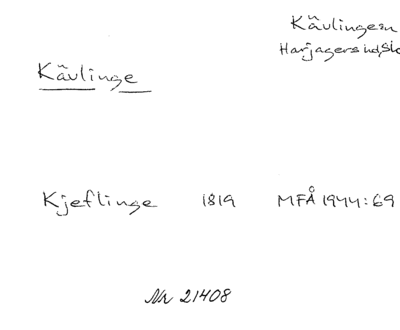 Kävlinge sn
Harjagers hd, Sk
Kävlinge
Kjeflinge 1819 MFÅ 1944:69
Nr 21408